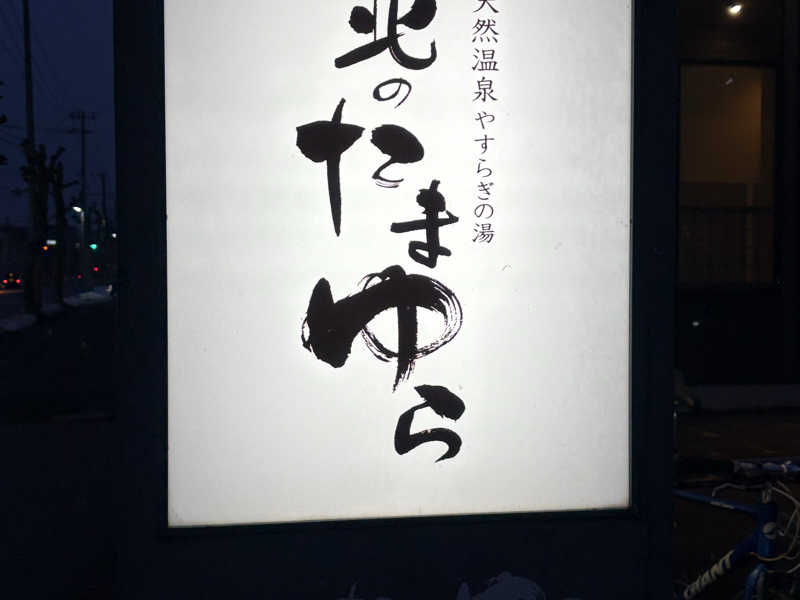 天然温泉 やすらぎの湯
北のたまゆら
GIANT